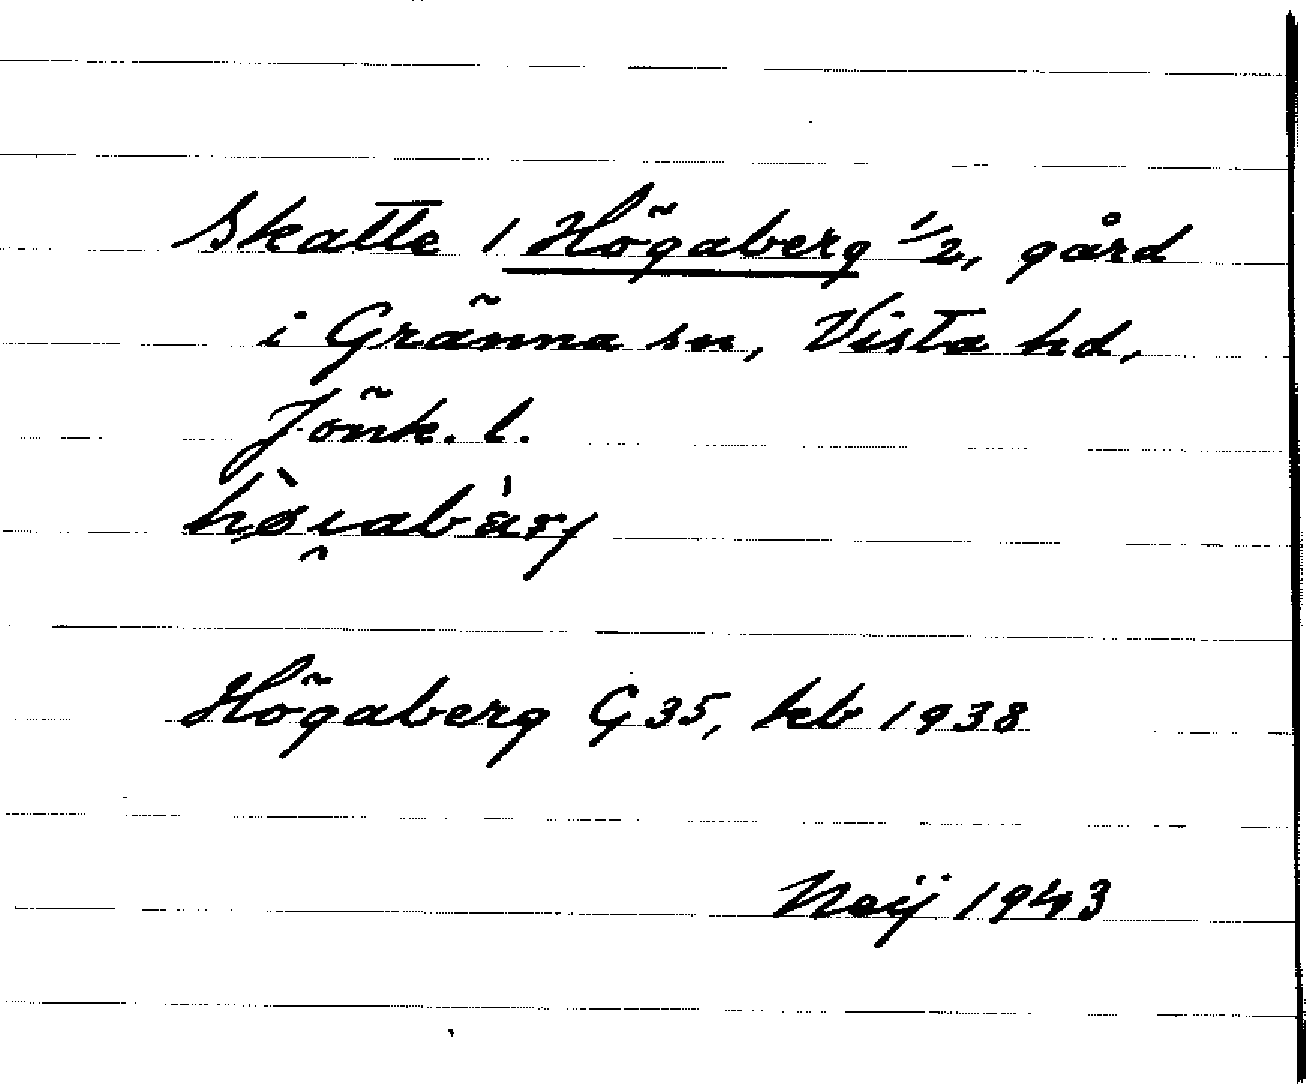 Skatte 1 Högaberg 1/2, gård
i Gränna sn, Vista hd,
Jönk. l.
Högaberg G 35, kb 1938
Neij 1943